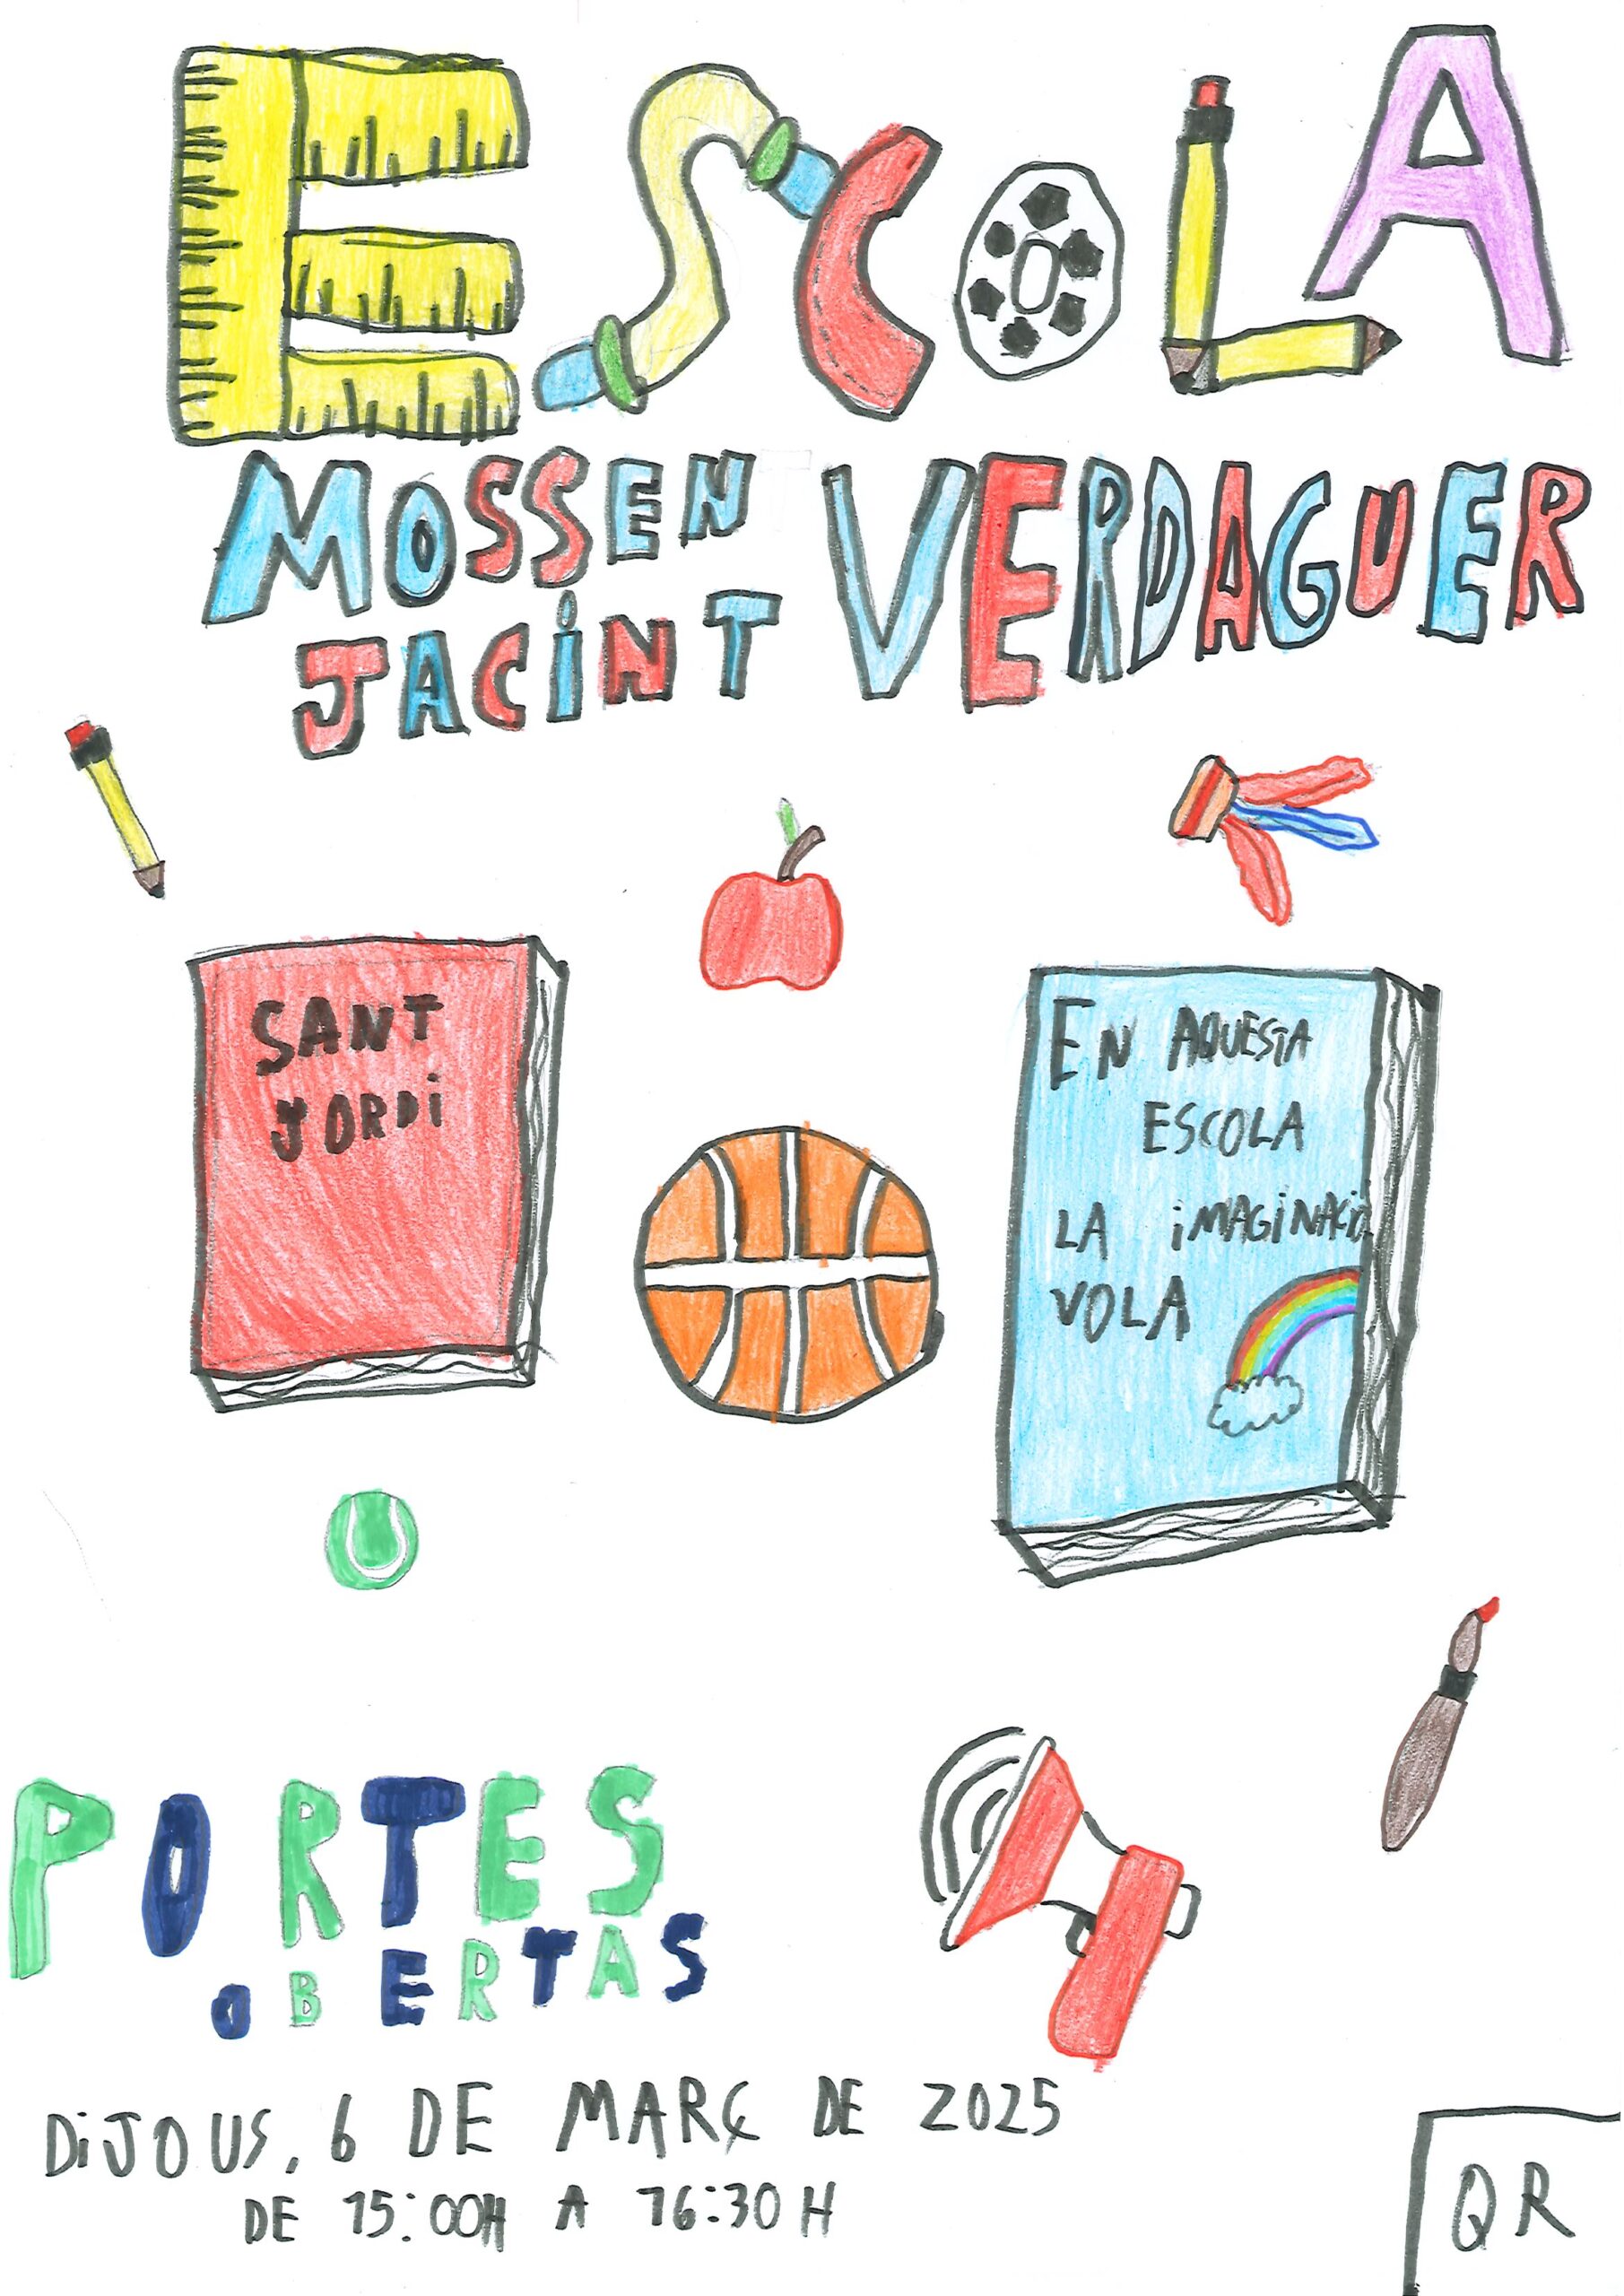 ESCOLA
MOSSEN VERDAGUER
JACINT
SANT
JORDI
EN AQUESTA
ESCOLA
LA IMAGINACIÓ
VOLA
PORTES
OBERTAS
DIJOUS, 6 DE MARÇ DE 2025
DE 15:00H A 16:30H
QR